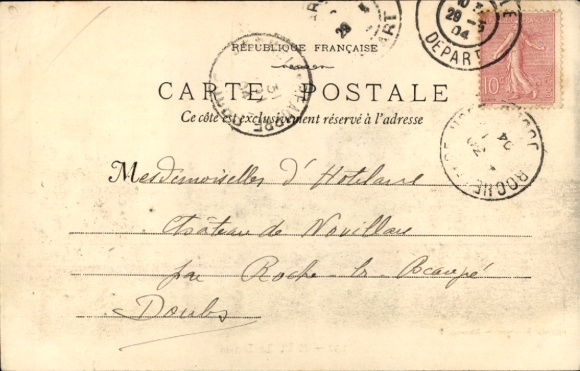 RÉPUBLIQUE FRANÇAISE
CARTE POSTALE
Ce côté est exclusivement réservé à l'adresse
Mesdemoiselles d'Hotelans
Château de Novillars
par Roche-lez-Beaupré
Doubs
DEPART
29 -5
04
10